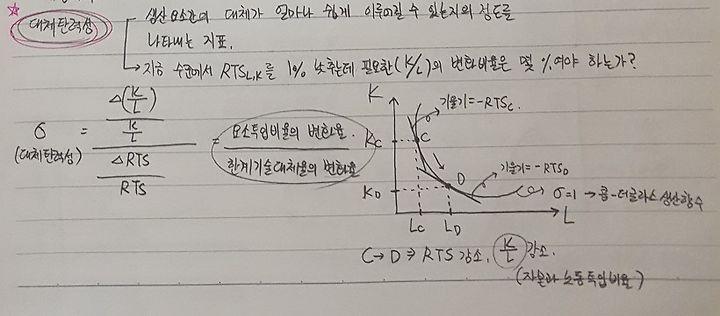 ☆ 대체탄력성
생산요소간의 대체가 얼마나 쉽게 이루어질 수 있는지의 정도를
나타내는 지표.
→ 지금 수준에서 RTS_{L,K}를 1% 낮추는데 필요한 (K/L)의 변화비율은 몇 %여야 하는가?
σ (대체탄력성) = (Δ(K/L) / (K/L)) / (ΔRTS / RTS) = 요소투입비율의 변화율. / 한계기술대체율의 변화율
K
기울기=-RTS_C.
K_C C
기울기=-RTS_D
K_D D
σ=1 → 콥-더글라스 생산함수
L_C L_D L
C→D ⇒ RTS 감소, K/L 감소.
(자본과 노동투입비율)